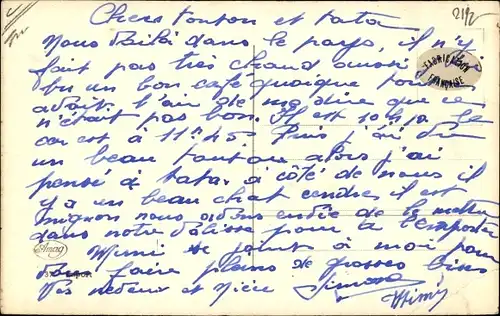 2192
Chers tonton et tata
Nous voilà dans le pays, il n'y
fait pas très chaud aussi j'ai
bu un bon café quoique tonton
avait l'air de me dire que ce
n'était pas bon. Il est 10 h 10 le
car est à 11h45 Puis j'ai vu
un beau toutou alors j'ai
pensé à tata à côté de nous il
y a un beau chat cendres il est
mignon nous avons envie de le mettre
dans notre valisse pour l'emporter
Mimi se joint à moi pour
vous faire pleins de grosses bises
Vos neveux et Nièce Simone
Mimi
FABRICATION
FRANÇAISE
Amag